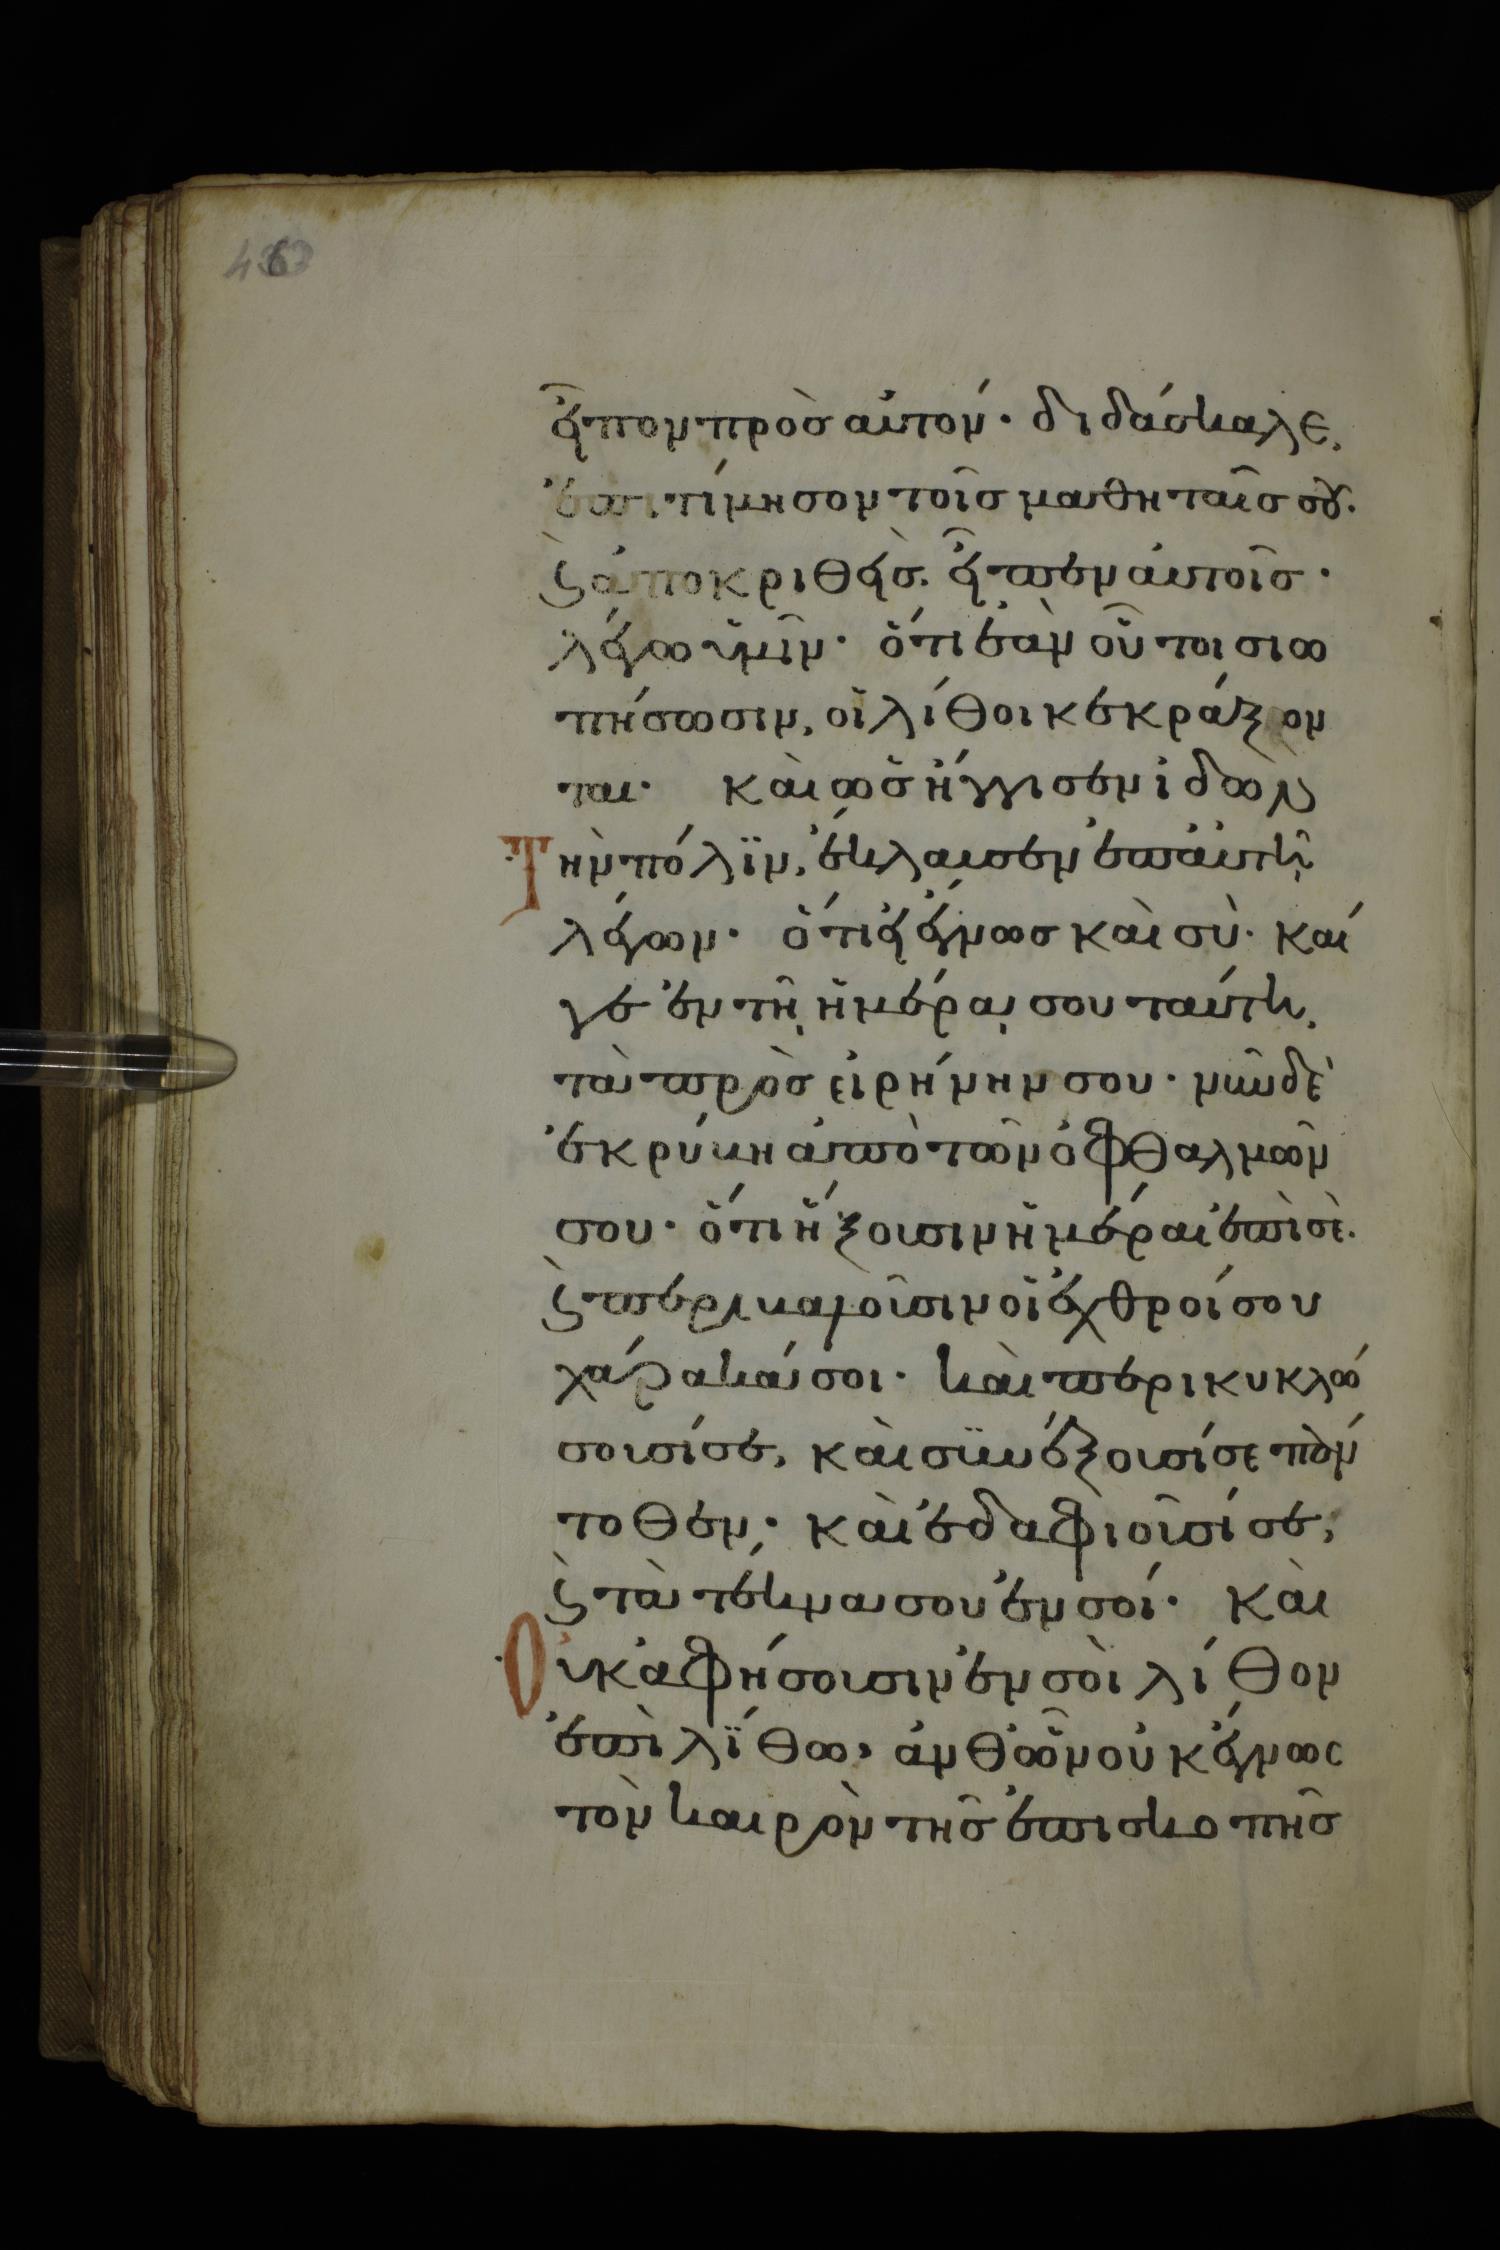 463
εἶπον πρὸς αὐτόν· διδάσκαλε,
ἐπιτίμησον τοῖς μαθηταῖς σου.
ϗ ἀποκριθεὶς. εἶπεν αὐτοῖς·
λέγω ὑμῖν· ὅτι ἐὰν οὗτοι σιω
πήσωσιν, οἱ λίθοι κεκράξον
ται· καὶ ὡς ἤγγισεν ἰδὼν
Τὴν πόλϊν, ἔκλαυσεν ἐπ' αὐτῆ
λέγων· ὅτι εἰ ἔγνως καὶ σὺ· καί
γε ἐν τῆ ἡμέρα σου ταύτη,
τὰ πρὸς εἰρήνην σου· νῦν δὲ
ἐκρύβη ἀπὸ τῶν ὀφθαλμῶν
σου· ὅτι ἥξουσιν ἡμέραι ἐπὶ σὲ.
ϗ περιβαλοῦσιν οἱ ἐχθροί σου
χάρακά σοι· καὶ περικυκλώ
σουσί σε, καὶ συνέξουσί σε πάν
τοθεν· καὶ ἐδαφιοῦσί σε,
ϗ τὰ τέκνα σου ἐν σοί· καὶ
Οὐκ ἀφήσουσιν ἐν σοὶ λίθον
ἐπὶ λΐθω, ἀνθ' ὧν οὐκ ἔγνως
τὸν καιρὸν τῆς ἐπισκοπῆς